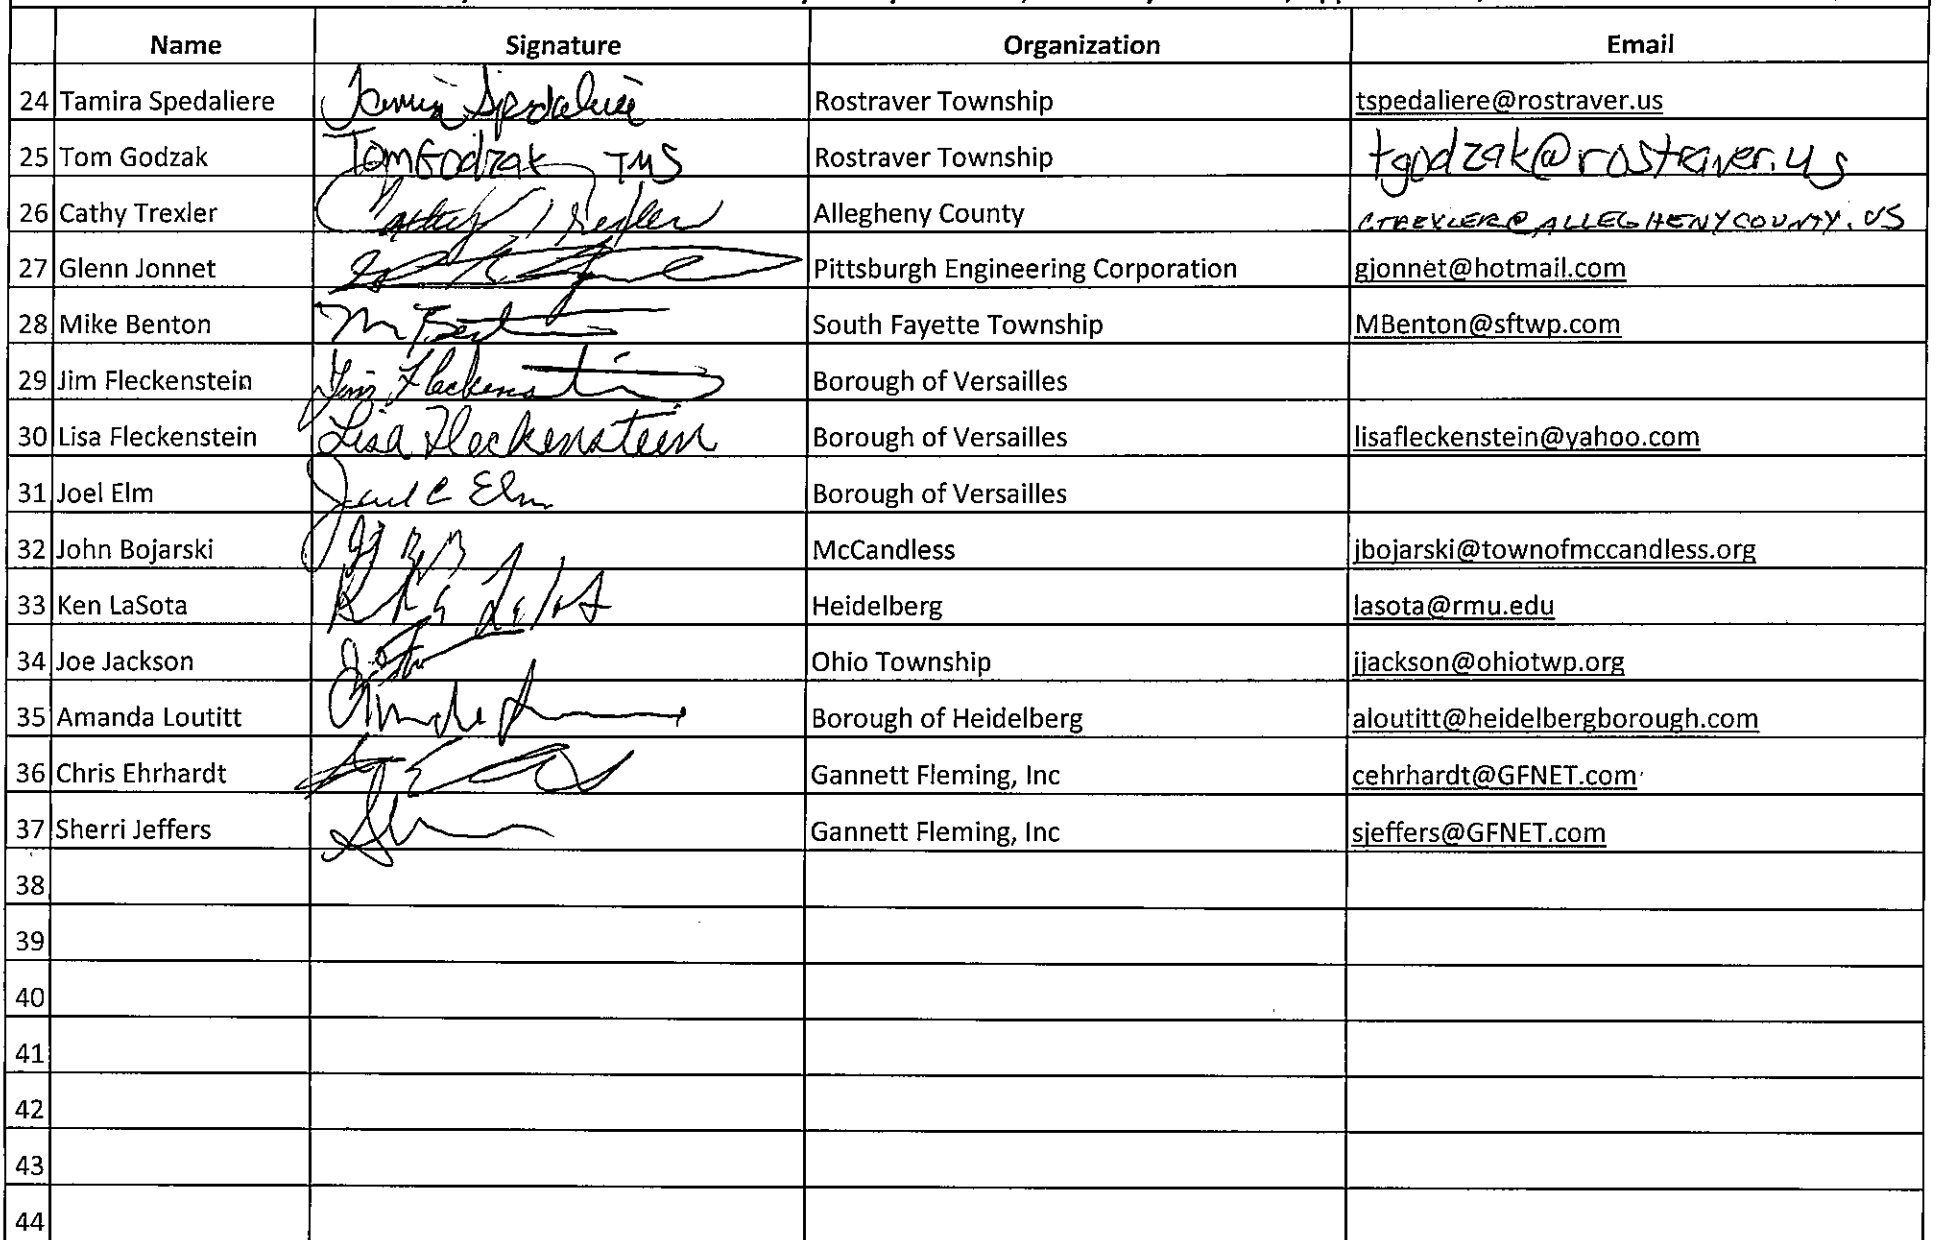 Name Signature Organization Email
24 Tamira Spedaliere Tamira Spedaliere Rostraver Township tspedaliere@rostraver.us
25 Tom Godzak Tom Godzak TMS Rostraver Township tgodzak@rostraver.us
26 Cathy Trexler Cathy Trexler Allegheny County CTREXLER@ALLEGHENYCOUNTY.US
27 Glenn Jonnet Pittsburgh Engineering Corporation gjonnet@hotmail.com
28 Mike Benton South Fayette Township MBenton@sftwp.com
29 Jim Fleckenstein Jim Fleckenstein Borough of Versailles
30 Lisa Fleckenstein Lisa Fleckenstein Borough of Versailles lisafleckenstein@yahoo.com
31 Joel Elm Joel C Elm Borough of Versailles
32 John Bojarski McCandless jbojarski@townofmccandless.org
33 Ken LaSota Heidelberg lasota@rmu.edu
34 Joe Jackson Ohio Township jjackson@ohiotwp.org
35 Amanda Loutitt Borough of Heidelberg aloutitt@heidelbergborough.com
36 Chris Ehrhardt Gannett Fleming, Inc cehrhardt@GFNET.com
37 Sherri Jeffers Gannett Fleming, Inc sjeffers@GFNET.com
38
39
40
41
42
43
44